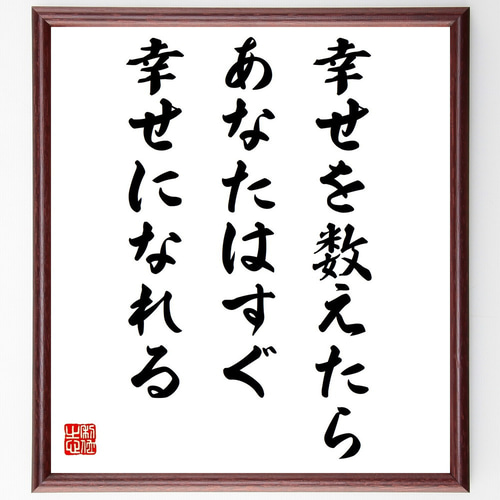 幸せを数えたら
あなたはすぐ
幸せになれる